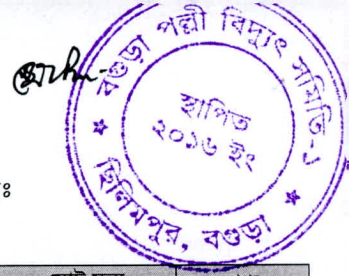 বগুড়া পল্লী বিদ্যুৎ সমিতি-১
স্থাপিত
২০১৬ ইং
ছিলিমপুর, বগুড়া
ঃ